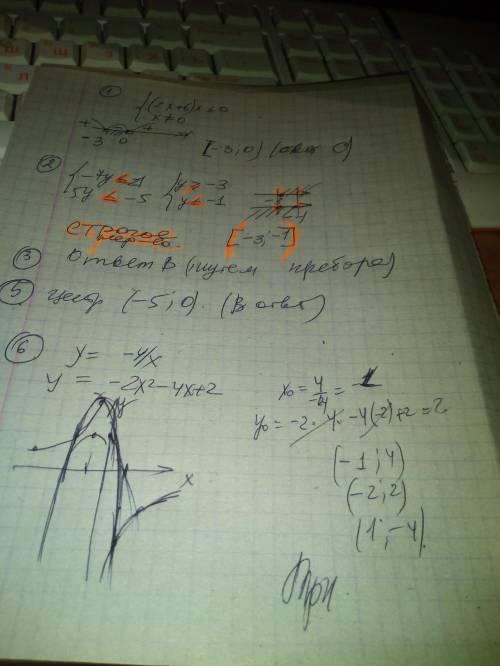 ①
{(2x+6)x≤0
x≠0
+ - +
-3 0
[-3;0) (ответ C)
②
{-7y ≤ 21
5y ≤ -5
{y ≥ -3
y ≤ -1
строгое
[-3;-1]
③ ответ B (путем перебора)
⑤ центр (-5;0). (B ответ)
⑥
y = -4/x
y = -2x²-4x+2
x₀ = 4/-4 = -1
y₀ = -2·4·-4(-2)+2=2
(-1;4)
(-2;2)
(1;-4).
y
x